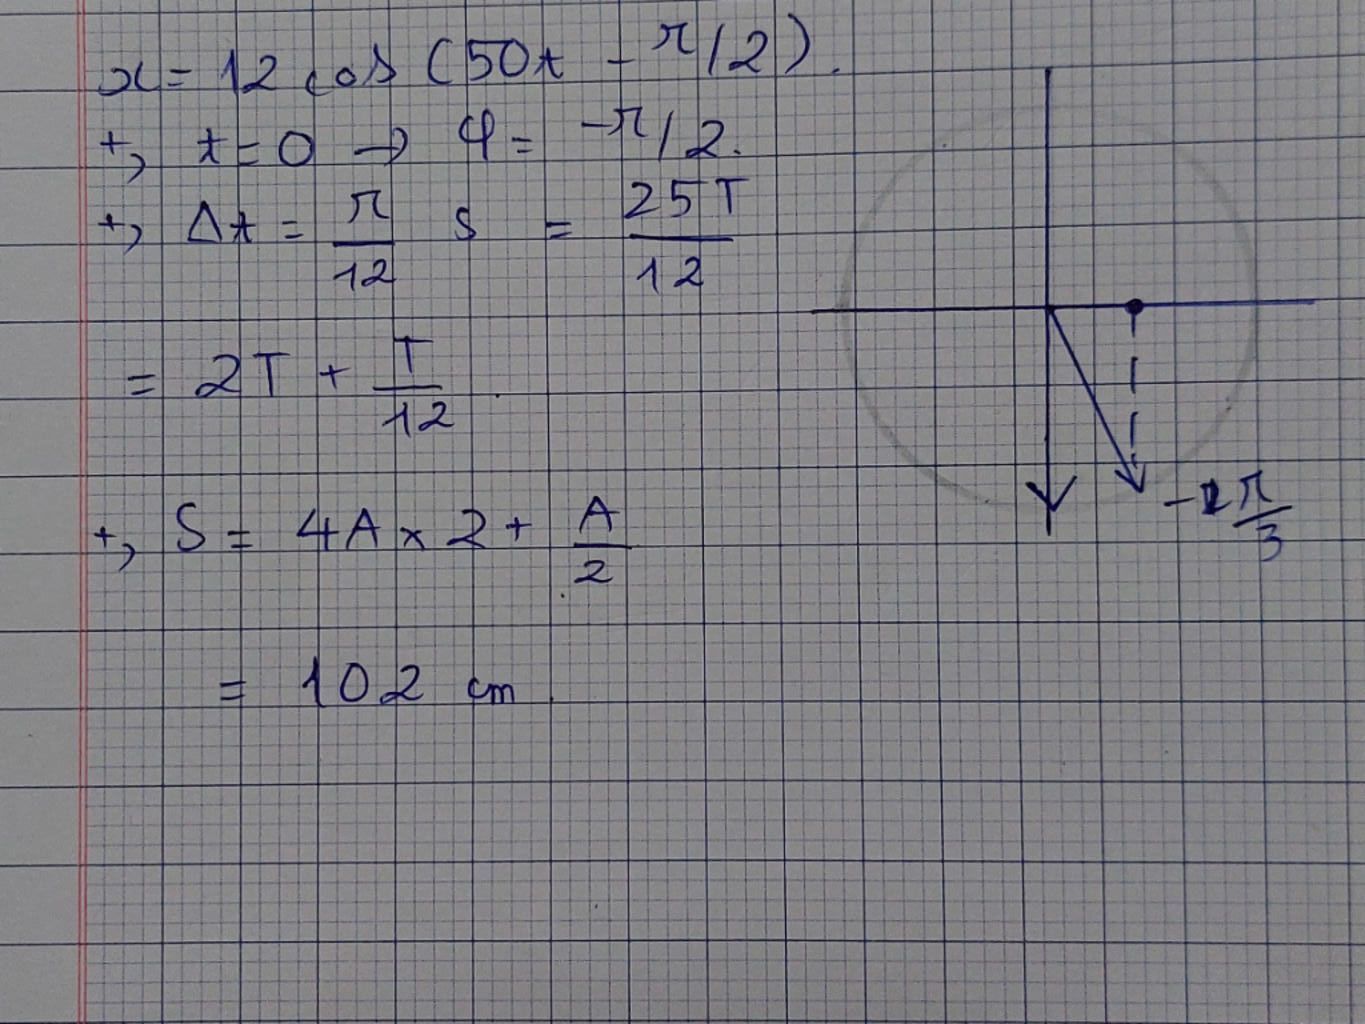 x = 12 cos (50t - π/2).
+, t = 0 → φ = -π/2.
+, Δt = π/12 s = 25T/12
= 2T + T/12.
+, S = 4A × 2 + A/2
= 102 cm.
-π/3